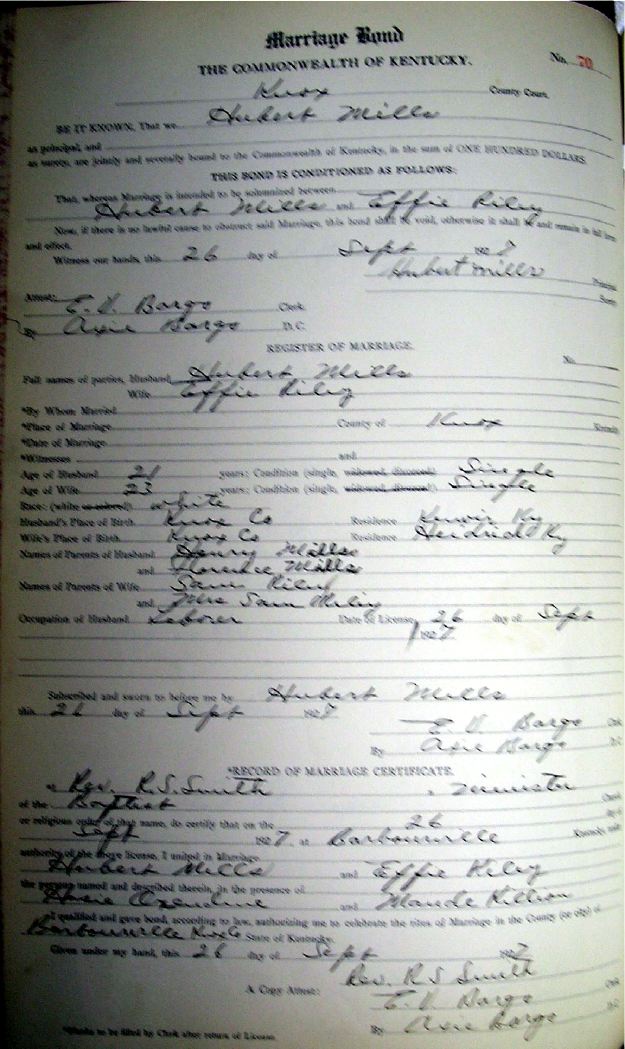 Marriage Bond
No. 70
THE COMMONWEALTH OF KENTUCKY.
Knox County Court.
BE IT KNOWN, That we Hubert Mills
as principal, and
as surety, are jointly and severally bound to the Commonwealth of Kentucky, in the sum of ONE HUNDRED DOLLARS.
THIS BOND IS CONDITIONED AS FOLLOWS:
That, whereas Marriage is intended to be solemnized between
Hubert Mills and Effie Riley
Now, if there is no lawful cause to obstruct said Marriage, this bond shall be void, otherwise it shall be and remain in full force
and effect.
Witness our hands, this 26 day of Sept 1927
Hubert Mills Principal
Surety
Attest:
E. V. Bargo Clerk
By Axie Bargo D.C.
REGISTER OF MARRIAGE.
No.
Full names of parties, Husband Hubert Mills
Wife Effie Riley
*By Whom Married
*Place of Marriage County of Knox Kentucky
*Date of Marriage
*Witnesses and
Age of Husband 21 years: Condition (single, widowed, divorced) Single
Age of Wife 23 years: Condition (single, widowed, divorced) Single
Race: (white or colored) white
Husband's Place of Birth Knox Co Residence Ky
Wife's Place of Birth Knox Co Residence Ky
Names of Parents of Husband Henry Mills
and Florence Mills
Names of Parents of Wife Sam Riley
and Mrs Sam Riley
Occupation of Husband Laborer Date of License, 26 day of Sept
1927
Subscribed and sworn to before me by Hubert Mills
this 26 day of Sept 1927
E. V. Bargo Clerk
By Axie Bargo D.C.
*RECORD OF MARRIAGE CERTIFICATE.
Rev. R. S. Smith, a minister
of the Baptist Church
or religious order of that name, do certify that on the 26 day of
Sept 1927 at Barbourville Kentucky under
authority of the above license, I united in Marriage
Hubert Mills and Effie Riley
the persons named and described therein, in the presence of
and Maude Killion
I qualified and gave bond, according to law, authorizing me to celebrate the rites of Marriage in the County (or city) of
Barbourville State of Kentucky.
Given under my hand, this 26 day of Sept 1927
Rev. R. S. Smith
A Copy Attest: E. V. Bargo Clerk
By Axie Bargo D.C.
*Blanks to be filled by Clerk after return of License.